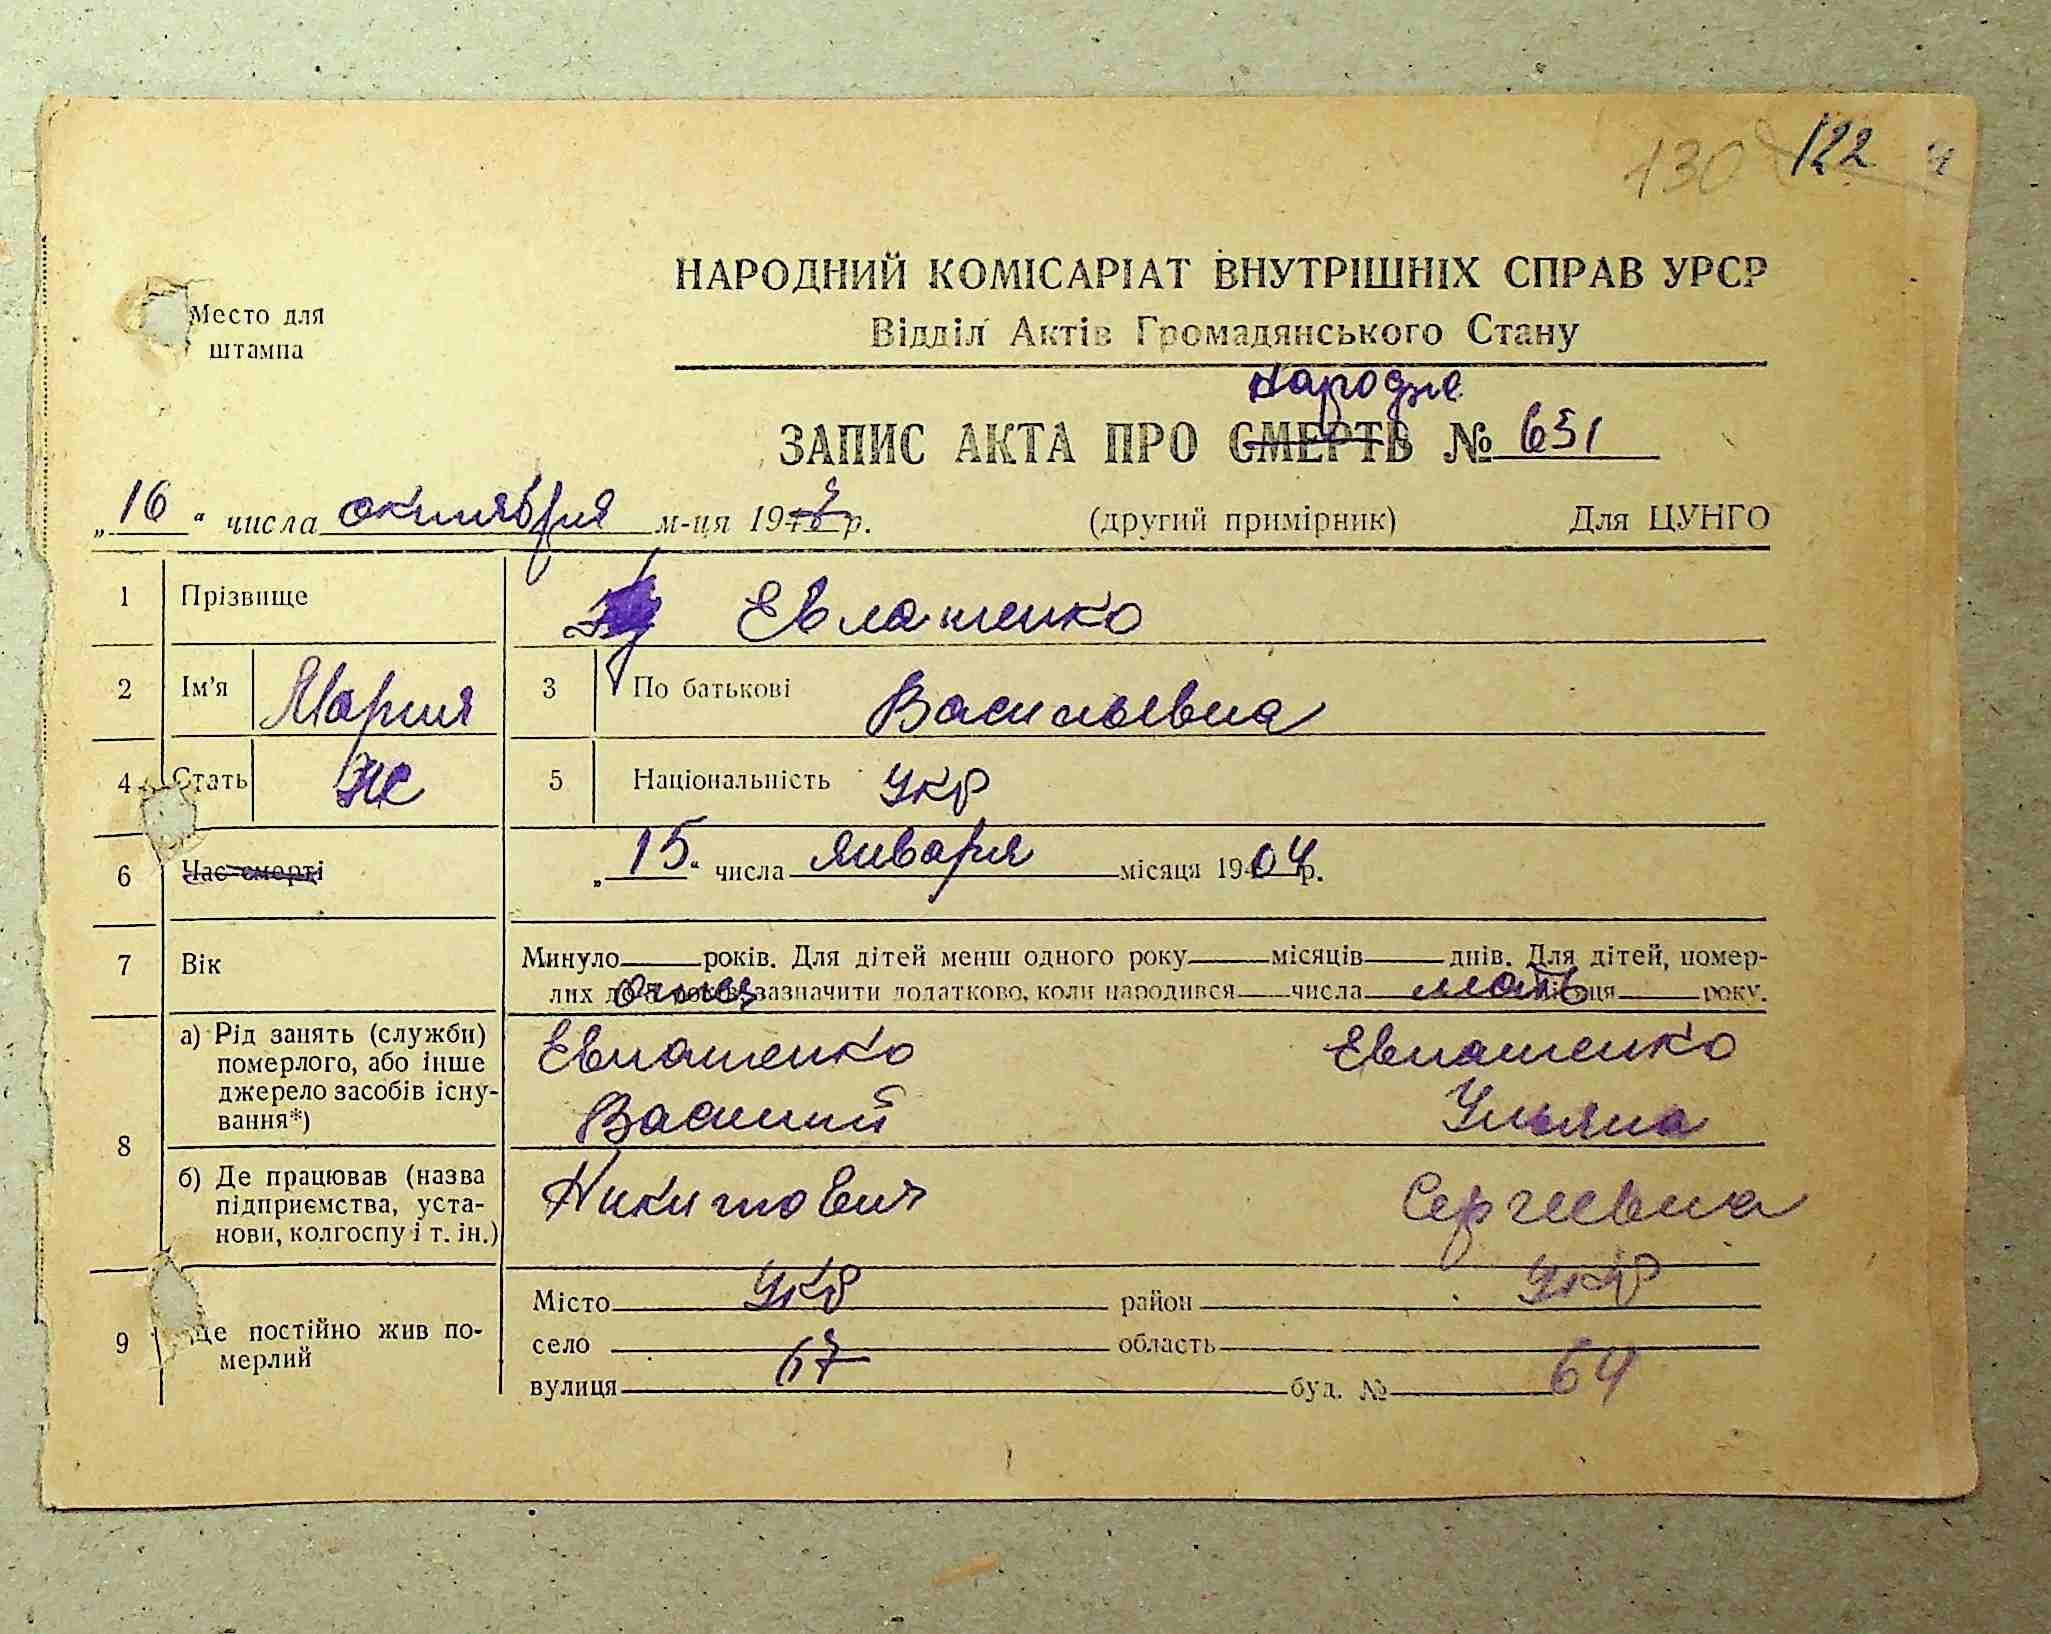 130 122
Место для
штампа
НАРОДНИЙ КОМІСАРІАТ ВНУТРІШНІХ СПРАВ УРСР
Відділ Актів Громадянського Стану
Народже
ЗАПИС АКТА ПРО СМЕРТЬ № 651
„16“ числа октября м-ця 1947 р. (другий примірник) Для ЦУНГО
1 Прізвище Евлашенко
2 Ім'я Мария 3 По батькові Васильевна
4 Стать Ж 5 Національність Укр
6 Час смерті „15“ числа января місяця 1904 р.
7 Вік Минуло років. Для дітей менш одного року місяців днів. Для дітей, помер-
лих до 5 років, зазначити додатково, коли народився числа місяця року.
отец мать
8 а) Рід занять (служби)
померлого, або інше
джерело засобів існу-
вання*)
Евлашенко Евлашенко
Василий Ульяна
б) Де працював (назва
підприємства, уста-
нови, колгоспу і т. ін.)
Никитович Сергеевна
9 Де постійно жив по-
мерлий
Місто Укр район Укр
село область
вулиця 67 буд. № 64